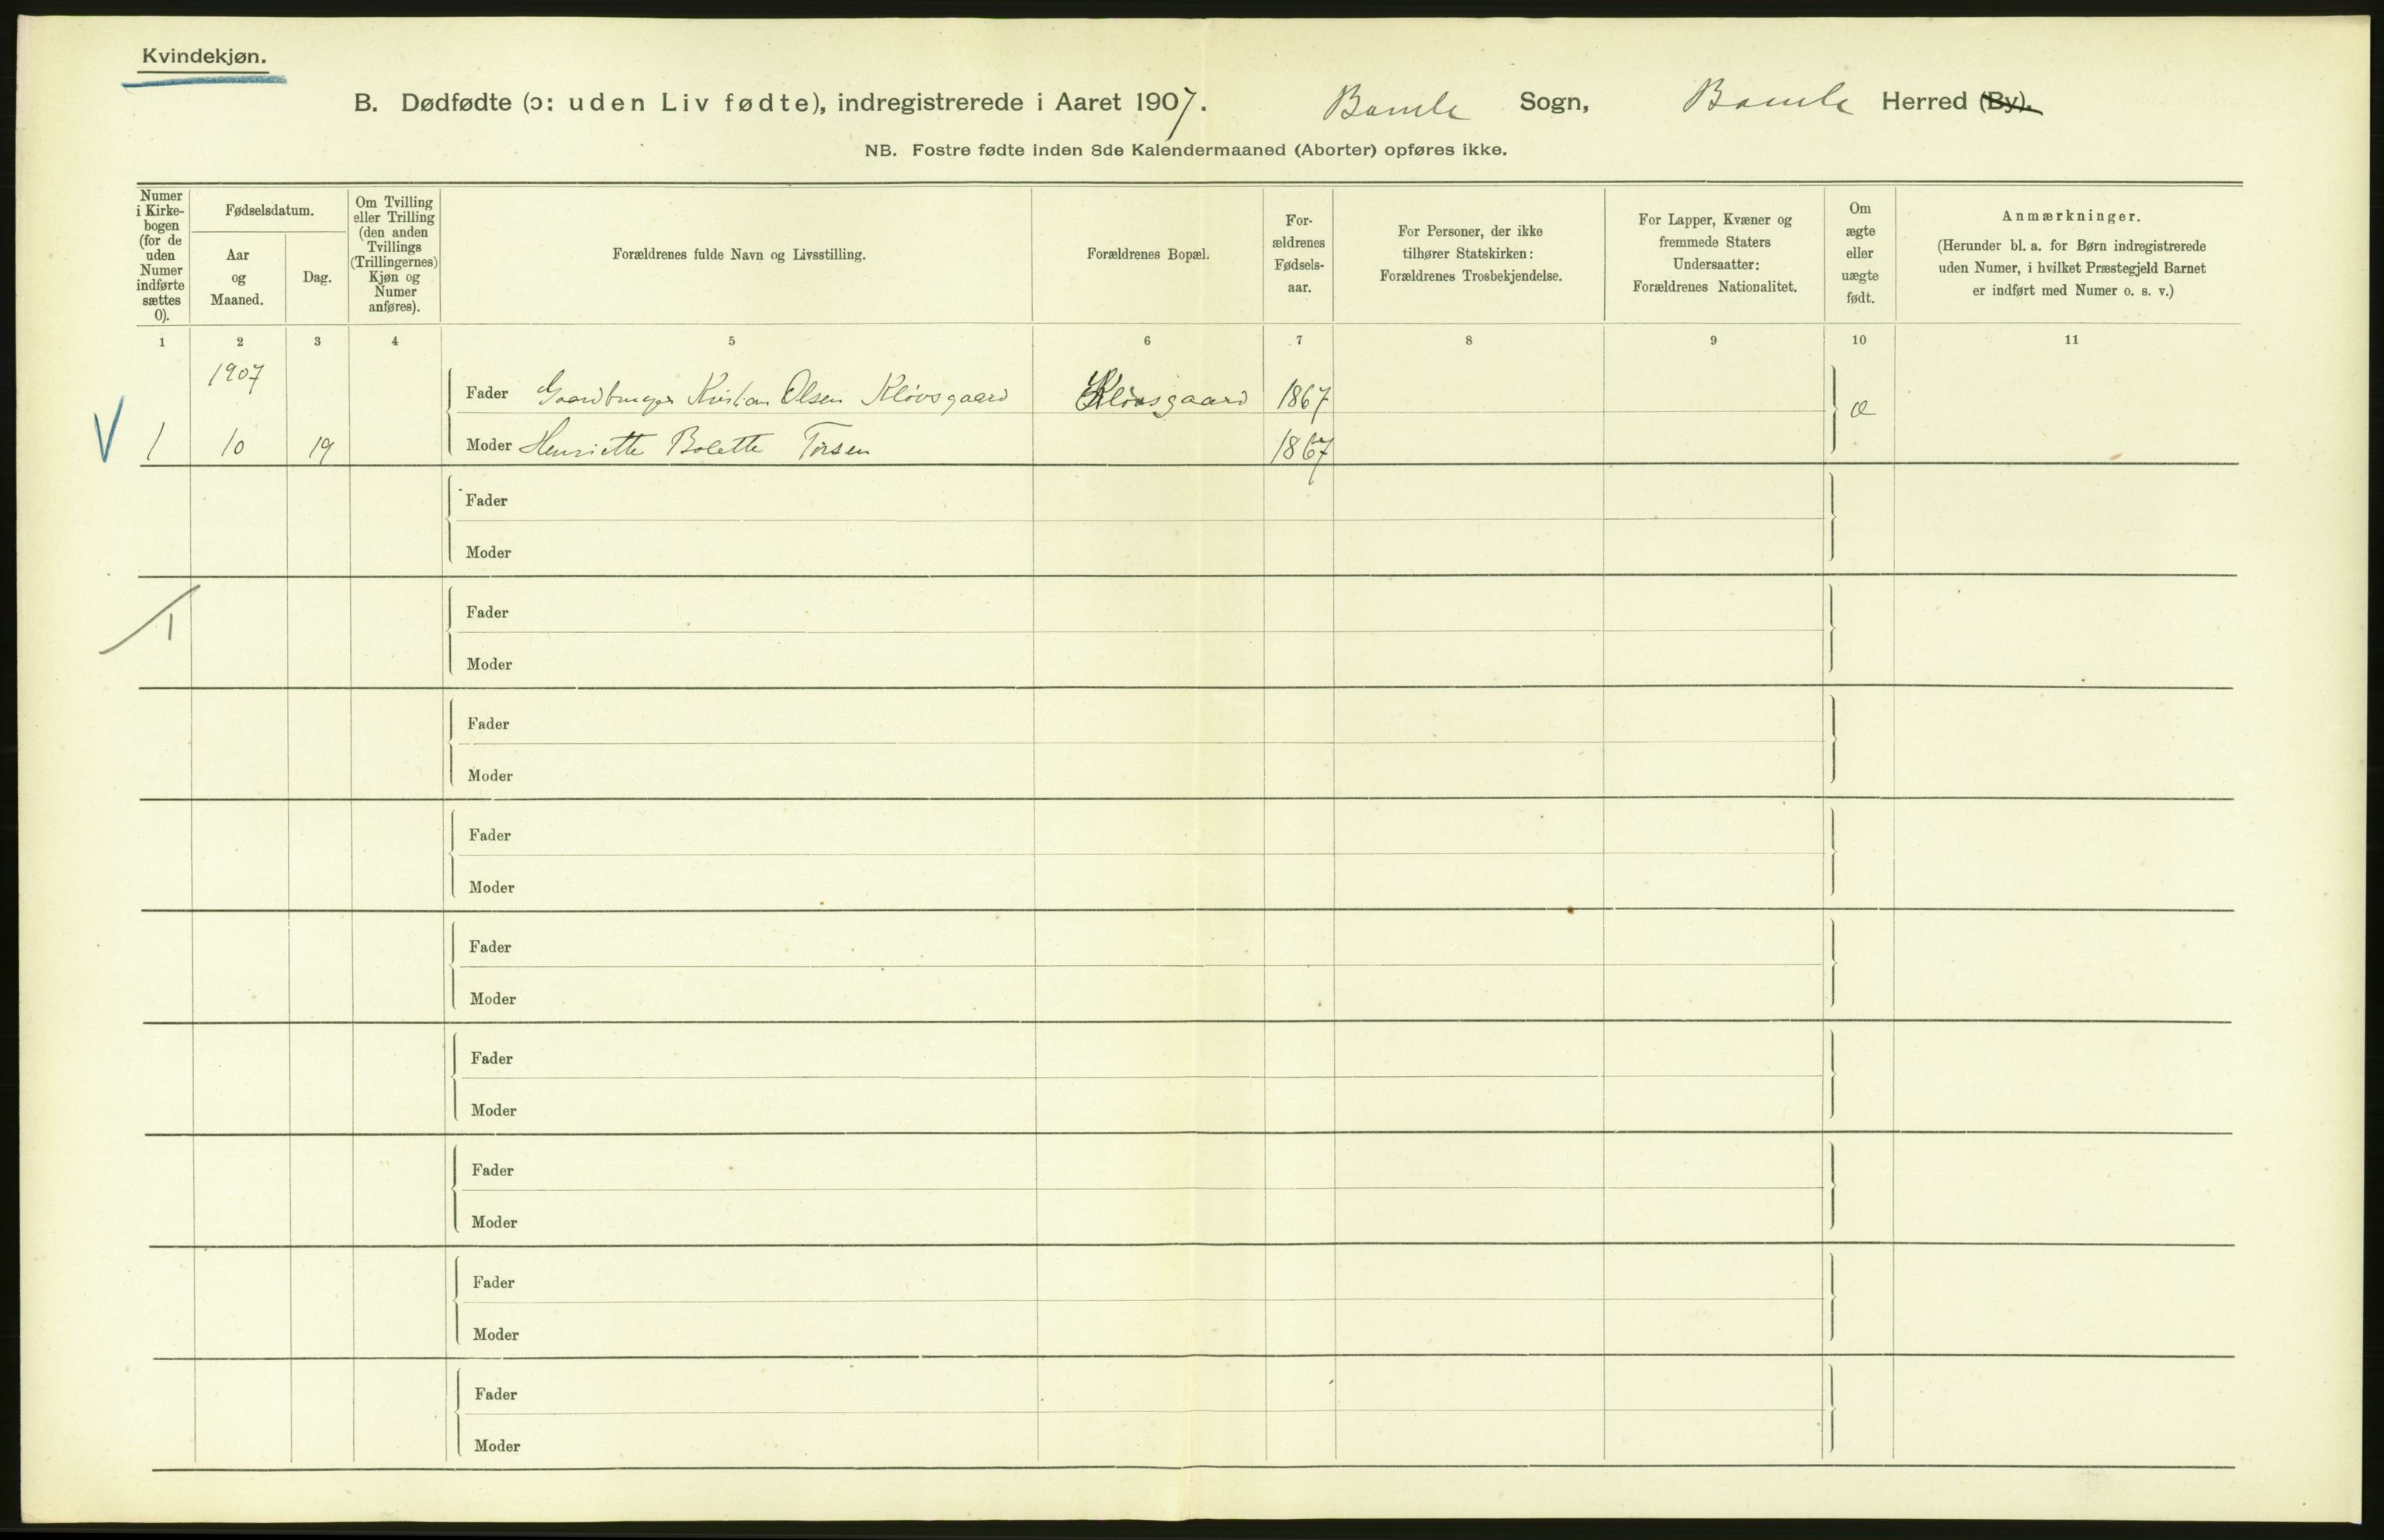 Kvindekjøn.
B. Dødfødte (ɔ: uden Liv fødte), indregistrerede i Aaret 1907. Bamle Sogn, Bamle Herred (By).
NB. Fostre fødte inden 8de Kalendermaaned (Aborter) opføres ikke.
Numer i Kirke-bogen (for de uden Numer indførte sættes 0).
Fødselsdatum.
Aar og Maaned.
Dag.
Om Tvilling eller Trilling (den anden Tvillings (Trillingernes) Kjøn og Numer anføres).
Forældrenes fulde Navn og Livsstilling.
Forældrenes Bopæl.
For-ældrenes Fødsels-aar.
For Personer, der ikke tilhører Statskirken: Forældrenes Trosbekjendelse.
For Lapper, Kvæner og fremmede Staters Undersaatter: Forældrenes Nationalitet.
Om ægte eller uægte født.
Anmærkninger.
(Herunder bl. a. for Børn indregistrerede uden Numer, i hvilket Præstegjeld Barnet er indført med Numer o. s. v.)
1 2 3 4 5 6 7 8 9 10 11
1907
Fader Gaardbruger Kristian Olsen Kløvsgaard Kløvsgaard 1867 æ
V 1 10 19 Moder Henriette Bolette 1867
Fader
Moder
1
Fader
Moder
Fader
Moder
Fader
Moder
Fader
Moder
Fader
Moder
Fader
Moder
Fader
Moder
Fader
Moder